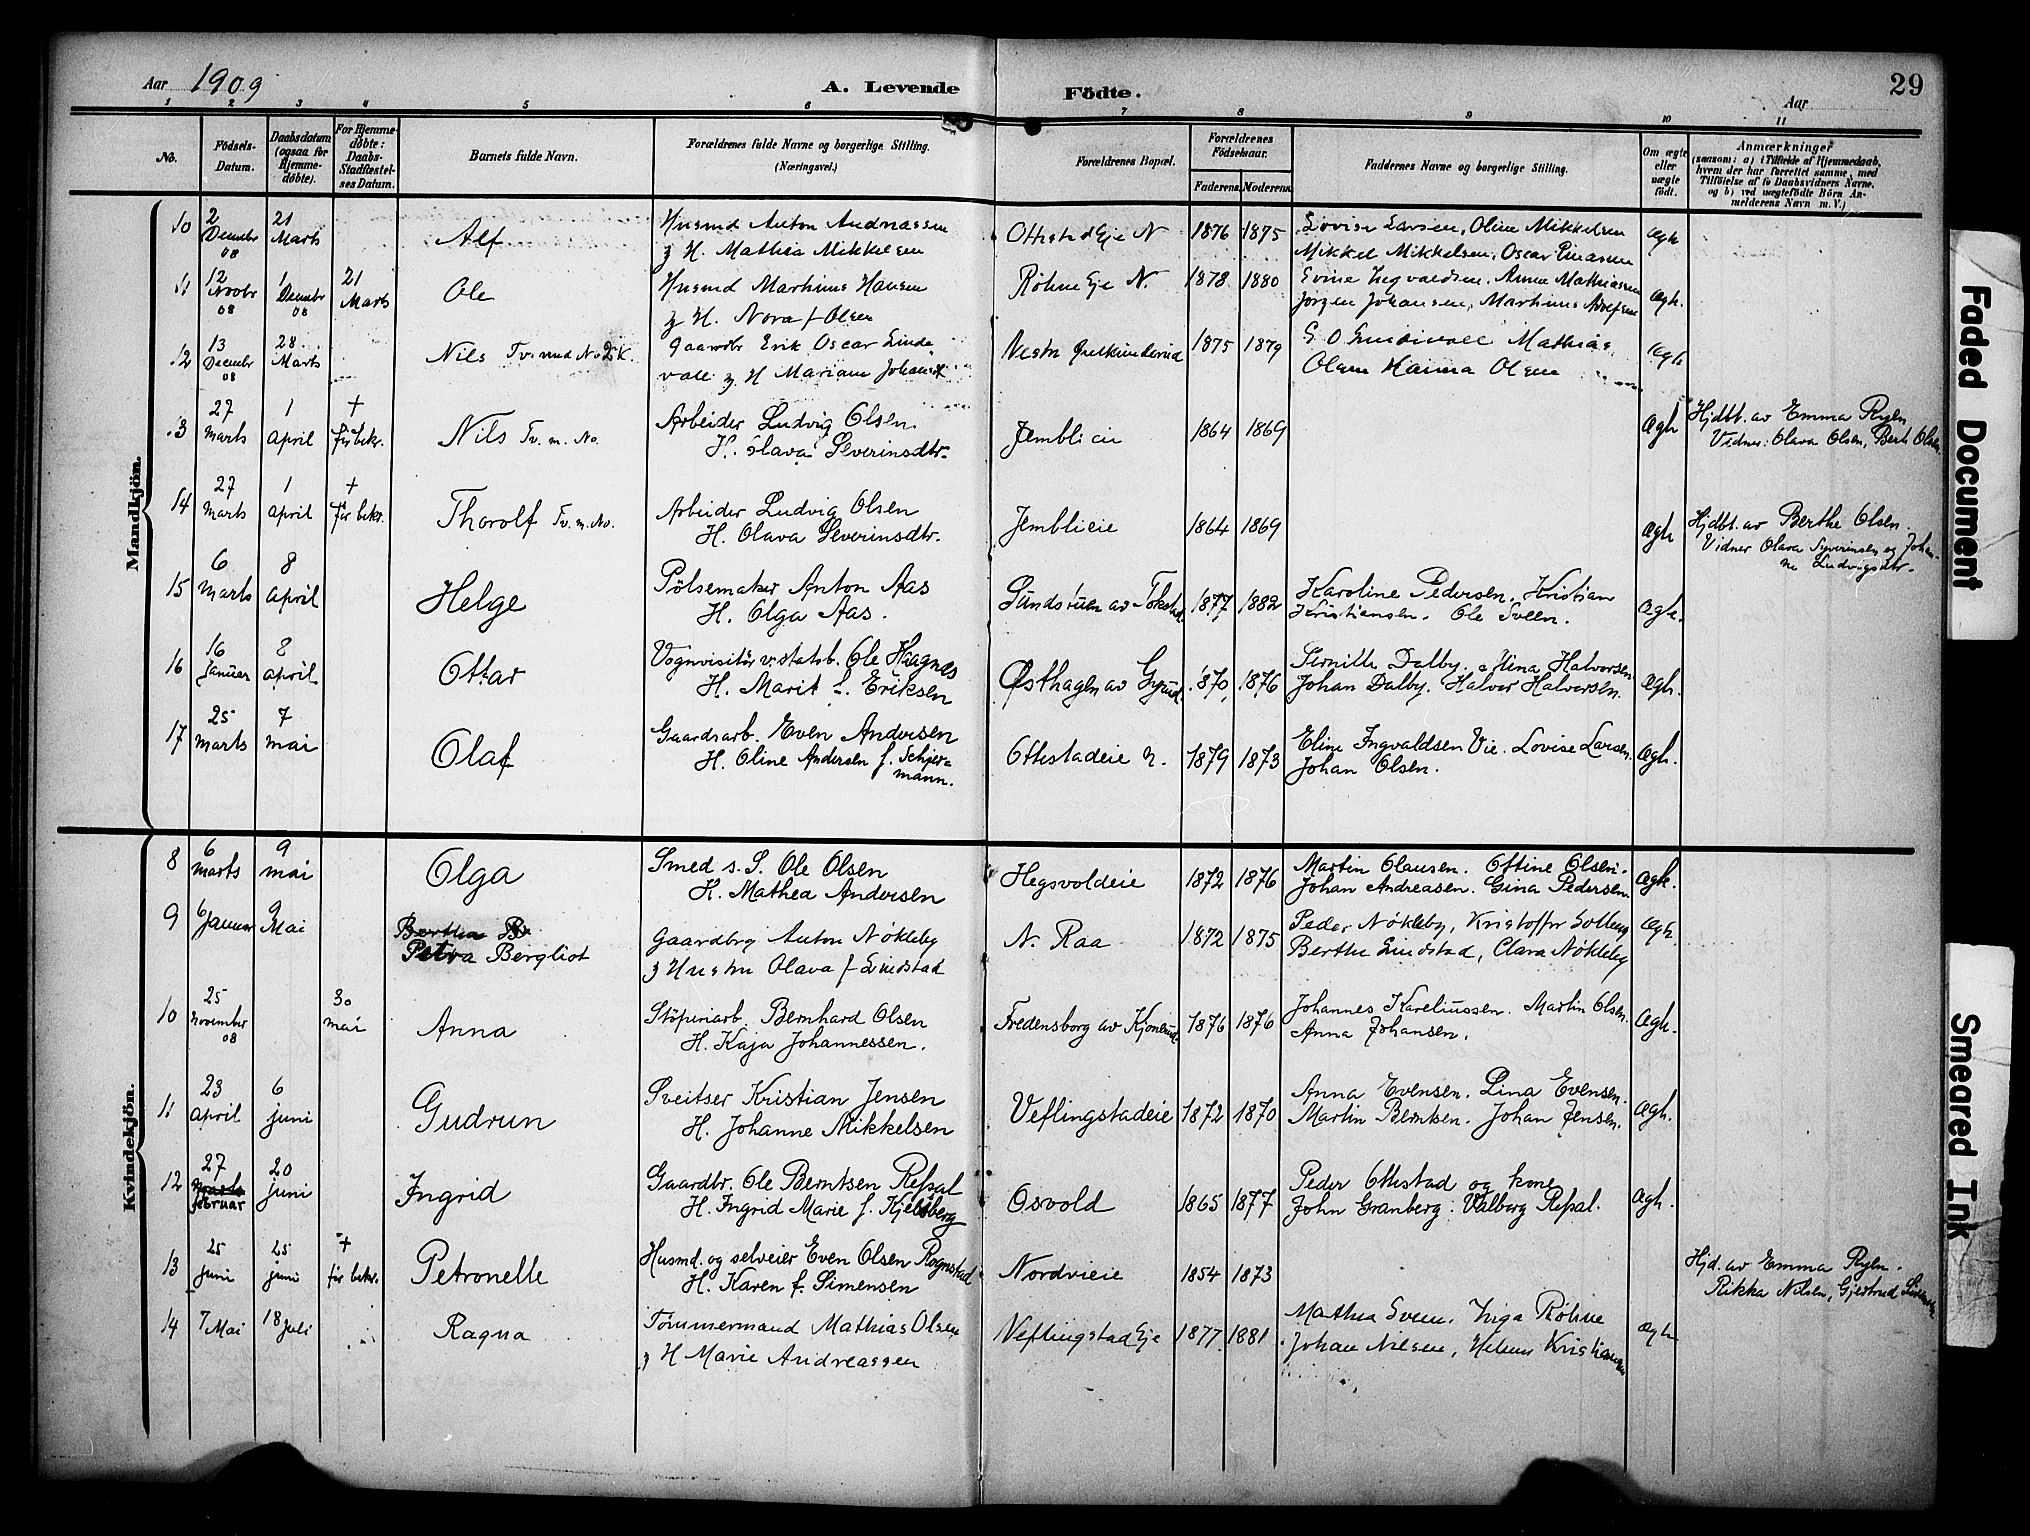 Aar 1909
A. Levende Födte.
Aar
29
1 2 3 4 5 6 7 8 9 10 11
No.
Födsels-Datum.
Daabsdatum (ogsaa for Hjemme-döbte).
For Hjemme-döbte: Daabs-Stadfæstel-ses Datum.
Barnets fulde Navn.
Forældrenes fulde Navne og borgerlige Stilling. (Næringsvei.)
Forældrenes Bopæl.
Forældrenes Födselsaar.
Faderens. Moderens.
Faddernes Navne og borgerlige Stilling.
Om ægte eller uægte födt.
Anmærkninger
(saasom: a) i Tilfælde af Hjemmedaab, hvem der har forrettet samme, med Tilföielse af to Daabsvidners Navne, og b) ved uægtefödte Börn An-melderens Navn m. V.)
Mandkjön.
10 2 Decembr 08 21 Marts Alf Husmd Anton Andreassen
& H. Mathea Mikkelsen Ottestad Eje N 1876 1875 Lovise Larsen, Oline Mikkelsen
Mikkel Mikkelsen, Oscar Einarsen Ægte
11 12 Novbr 08 1 Decembr 08 21 Marts Ole Husmd Marthinus Hansen
& H. Nora f Olsen Røhne Eje N. 1878 1880 Evine Ingvaldsen, Anne Mathiasen
Jørgen Johansen, Marthinus Adolfsen Ægte.
12 13 Decembr 08 28 Marts Nils Tv. med No 2 K. Gaardbr Erik Oscar Linde
vall & H Mariane Johansd 1875 1879 E O Lindevall Mathias
Olsen Hanna Olsen Ægte
13 27 Marts 1 April + før bekr. Nils Tv. m. No. Arbeider Ludvig Olsen.
H. Olava Severinsdtr. Jemblieie 1864 1869 Ægte Hjdbt. av Emma Ryen
Vidner: Olava Olsen, Berth Olsen
14 27 Marts 1 April + før bekr. Thorolf Tv. m. No. Arbeider Ludvig Olsen
H. Olava Severinsdtr. Jemblieie 1864 1869 Ægte Hjdbt. av Berthe Olsen.
Vidner Olava Syverinsen og Johan-
ne Ludvigsdtr.
15 6 Marts 8 April Helge Pølsemaker Anton Aas
H. Olga Aas. Sundstuen av Tokstad 1877 1882 Karoline Pedersen, Kristian
Kristiansen. Ole Sveen. Ægte.
16 16 Januar 8 April Ottar Vognvisitør v. statsb. Ole Haagnæs
H. Marit f. Eriksen Østhagen av 1870 1876 Pernille Dalby. Mina Halvorsen
Johan Dalby. Halvor Halvorsen. Ægte.
17 25 Marts 7 Mai Olaf Gaardsarb. Even Andersen
H. Oline Andersen f. Schjer-
mann. Ottestadeie N. 1879 1873 Eline Ingvaldsen Vie. Lovise Larsen.
Johan Olsen. Ægte.
Kvindekjön.
8 6 Marts 9 Mai Olga Smed s. S. Ole Olsen
H. Mathea Andersen Hegsvoldeie 1872 1876 Martin Olausen. Ottine Olsen.
Johan Andreasen. Gina Pedersen. Ægte.
9 6 Januar 9 Mai Bertha
Petra Bergliot Gaardbrg Anton Nøkleby
& Hustru Olava f Lindstad N. Raa 1872 1875 Peder Nøkleby, Kristoffer
Berthe Lindstad, Clara Nøkleby Ægte.
10 25 November 08 30 Mai Anna Støperiarb. Bernhard Olsen
H. Kaja Johannessen. Fredensborg av Kjonerud 1876 1876 Johannes Kareliussen. Martin Olsen.
Anna Johansen. Ægte.
11 23 April 6 Juni Gudrun Sveitser Kristian Jensen
H. Johanne Mikkelsen Veflingstadeie 1872 1870 Anna Evensen. Lina Evensen.
Martin Berntsen. Johan Jensen. Ægte.
12 27 Marts Februar 20 Juni Ingrid Gaardbr. Ole Berntsen Refsal
H. Ingrid Marie f. Kjelsberg Osvold 1865 1877 Peder Ottestad og kone
John Granberg. Valborg Refsal. Ægte.
13 25 Juni 25 Juni + før bekr. Petronelle Husmd. og selveier Even Olsen Rognstad
H. Karen f. Simensen Nordvieie 1854 1873 Hjd. av Emma Ryen.
Rikka Nilsen, Gjertrud
14 7 Mai 18 Juli Ragna Tømmermand Mathias Olsen
& H Marie Andreassen Veflingstad Eje 1877 1881 Mathea Sveen, Inga Røhne
Johan Nilsen, Helmer Kristiansen Ægte
Faded Document
Smeared Ink